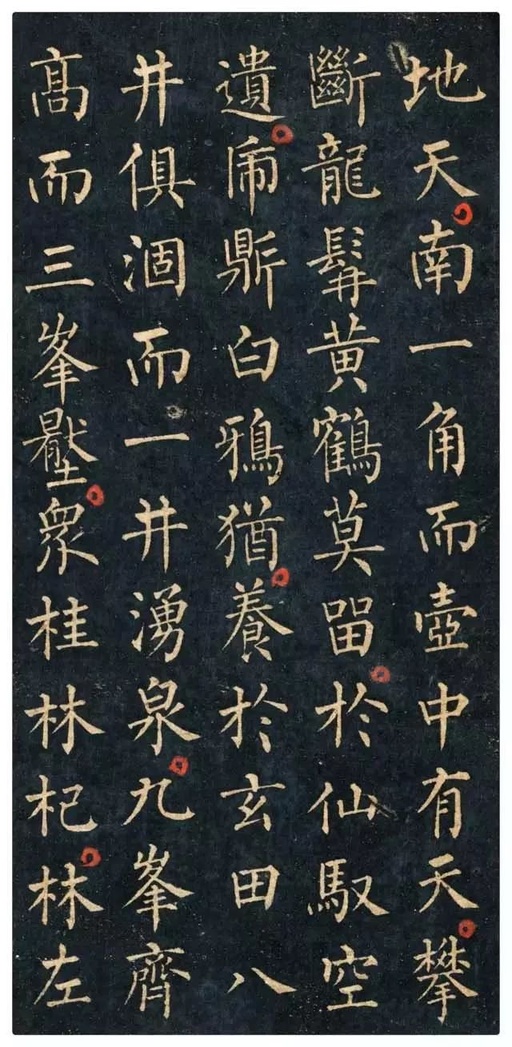 地天南一角而壺中有天攀
斷龍髯黄鶴莫留於仙馭空
遺乕鼎白鴉猶養於玄田八
井俱涸而一井湧泉九峯齊
髙而三峯壓衆桂林杞林左